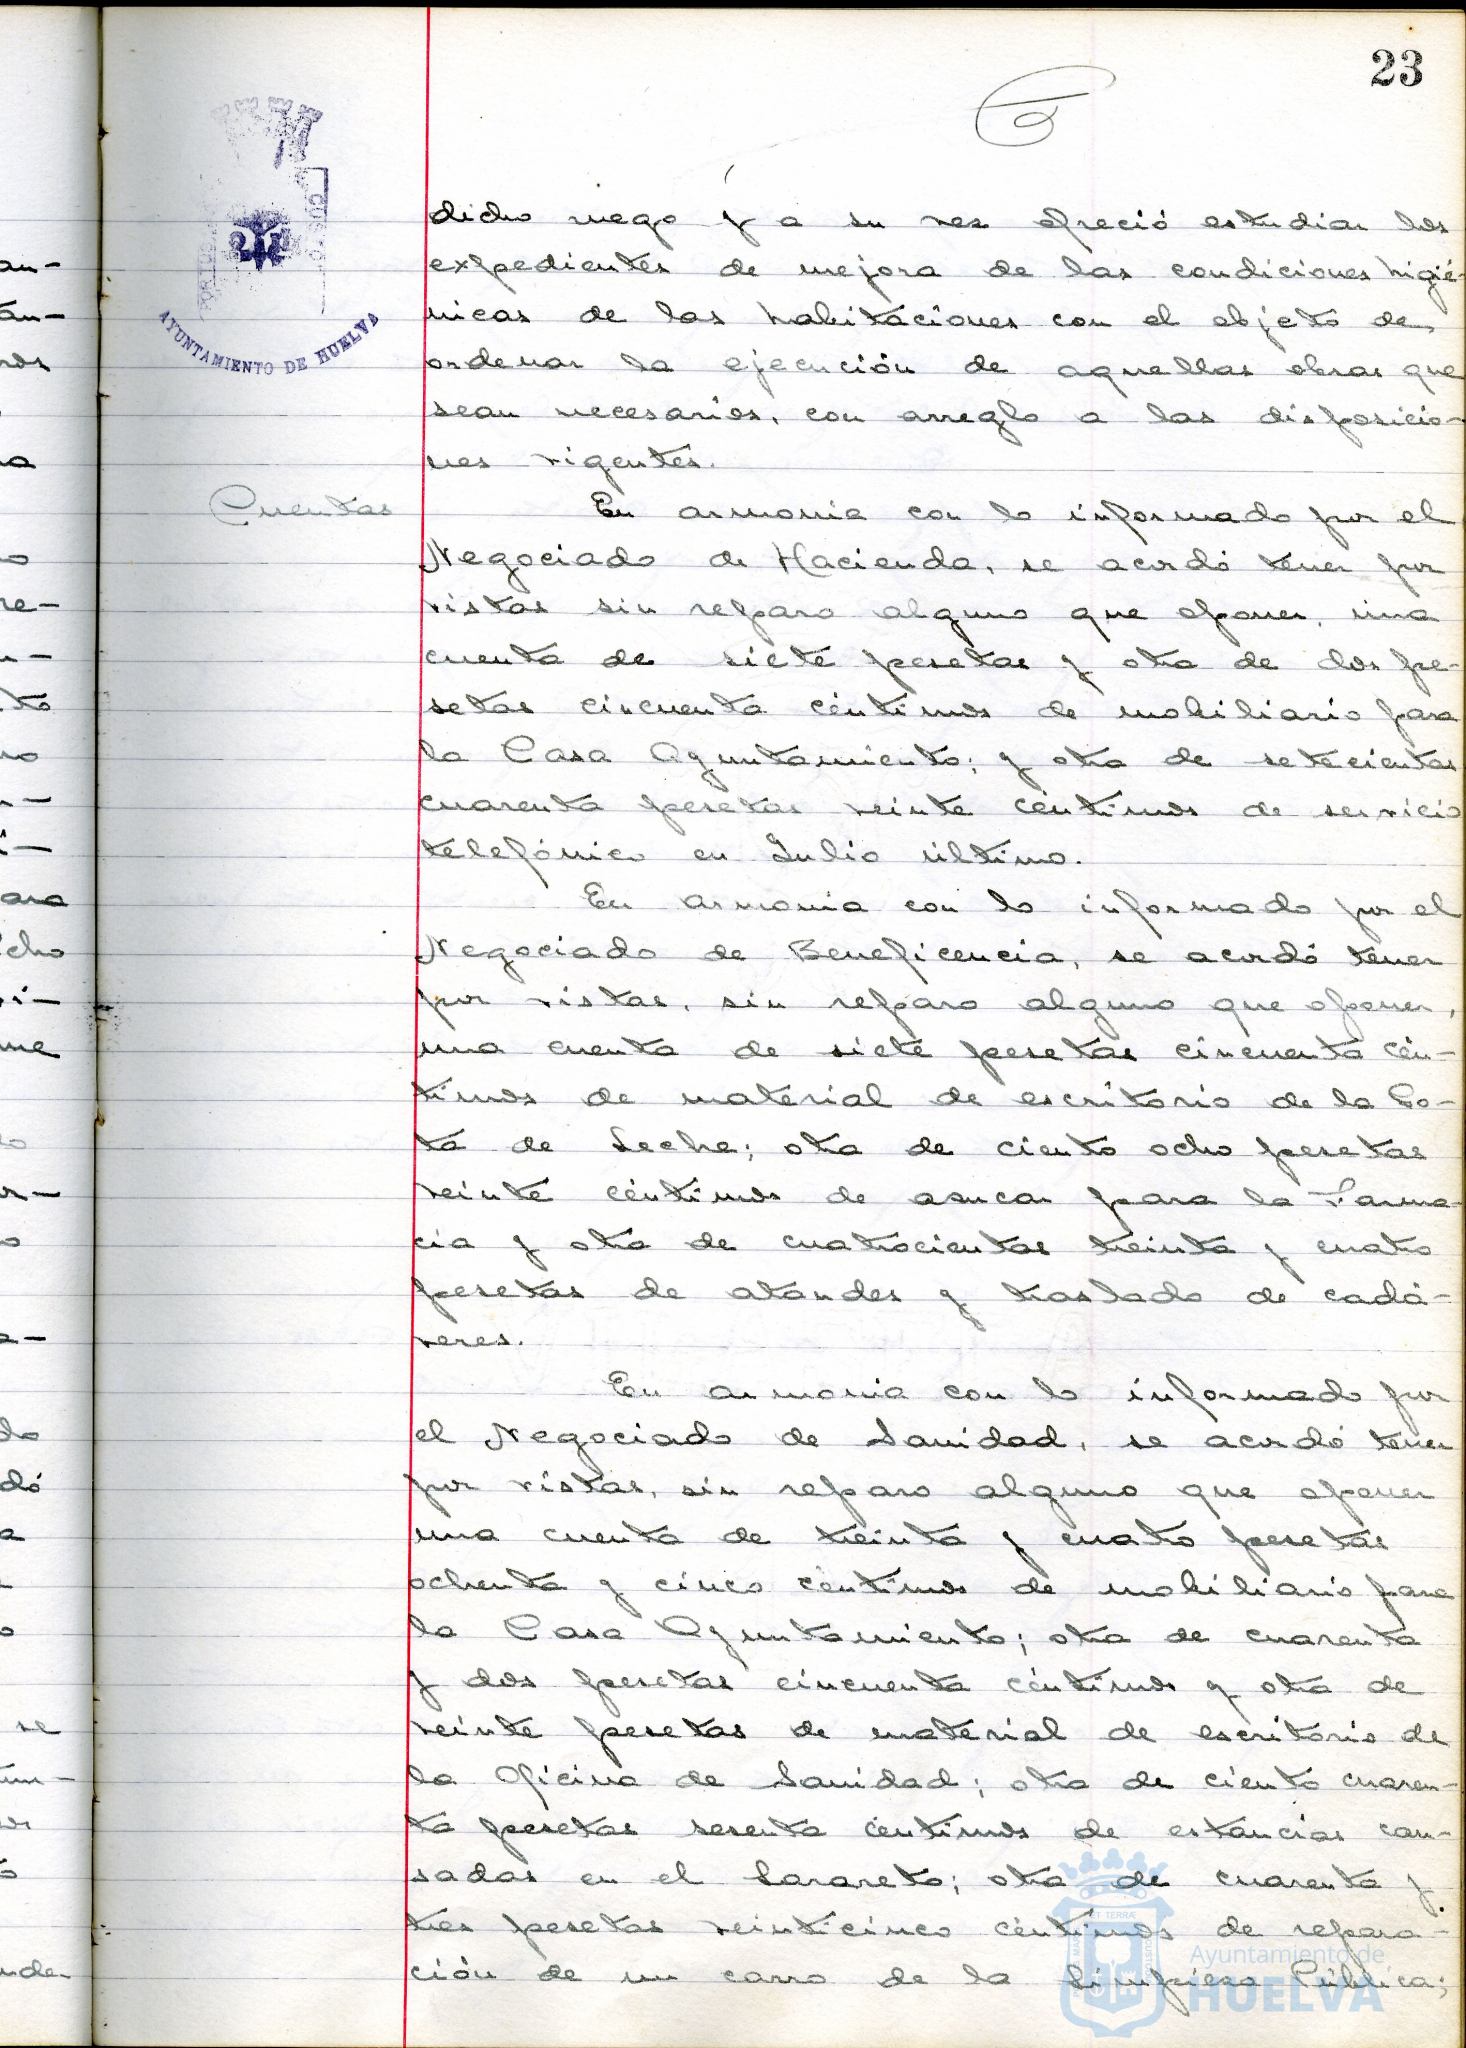 23
AYUNTAMIENTO DE HUELVA
dicho ruego y a su vez ofreció estudiar los
expedientes de mejora de las condiciones higié-
nicas de las habitaciones con el objeto de
ordenar la ejecución de aquellas obras que
sean necesarios, con arreglo a las disposicio-
nes vigentes.
Cuentas
En armonia con lo informado por el
Negociado de Hacienda, se acordó tener por
vistas sin reparo alguno que oponer, una
cuenta de siete pesetas y otra de dos pe-
setas cincuenta céntimos de mobiliario para
la Casa Ayuntamiento; y otra de setecientas
cuarenta pesetas veinte céntimos de servicio
telefónico en Julio último.
En armonia con lo informado por el
Negociado de Beneficencia, se acordó tener
por vistas, sin reparo alguno que oponer,
una cuenta de siete pesetas cincuenta cén-
timos de material de escritorio de la Go-
ta de Leche; otra de ciento ocho pesetas
veinte céntimos de asucar para la Farma-
cia y otra de cuatrocientas treinta y cuatro
pesetas de ataudes y traslado de cadá-
veres.
En armonia con lo informado por
el Negociado de Sanidad, se acordó tener
por vistas, sin reparo alguno que oponer
una cuenta de treinta y cuatro pesetas
ochenta y cinco céntimos de mobiliario para
la Casa Ayuntamiento; otra de cuarenta
y dos pesetas cincuenta céntimos y otra de
veinte pesetas de material de escritorio de
la Oficina de Sanidad; otra de ciento cuaren-
ta pesetas sesenta céntimos de estancias cau-
sadas en el Lazareto; otra de cuarenta y
tres pesetas veinticinco céntimos de repara-
ción de un carro de la Limpieza Pública;
Ayuntamiento de
HUELVA